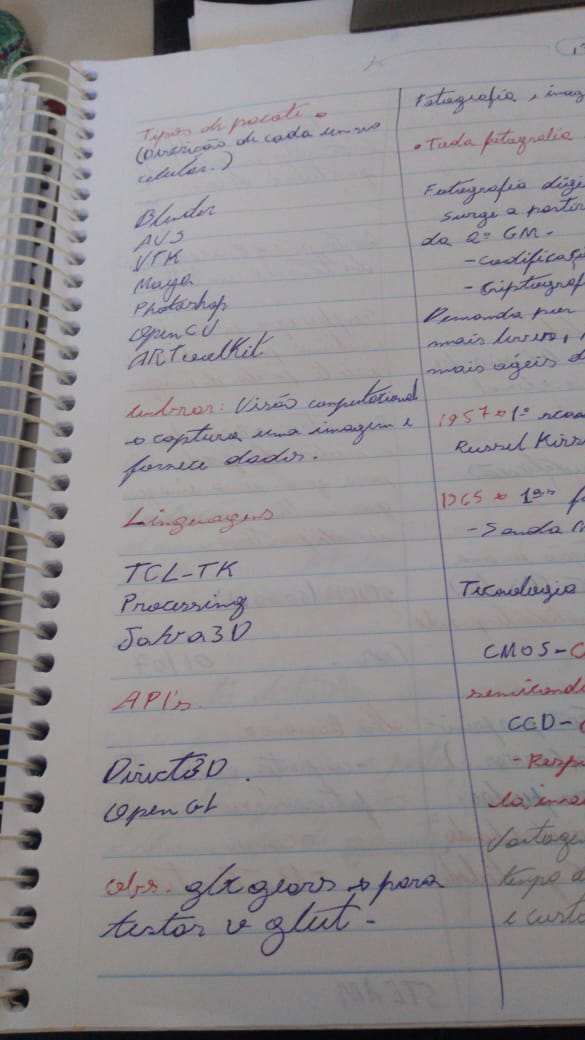 Tipos de pacote →
(Descrição de cada um no
celular.)
Blender
AVS
VTK
Maya
Photoshop
OpenCV
ARToolKit
Lembrar: Visão computacional
→ captura uma imagem e
fornece dados.
Linguagens
TCL-TK
Processing
Java3D
API's
Direct3D.
OpenGL
obs. glx gears → para
testar o glut.
Fotografia e imag
• Toda fotografia
Fotografia digi
surge a partir
da 2ª GM.
- Codificaçã
- Criptograf
Demanda por
mais leves,
mais ágeis d
1957 → 1º scan
Russel Kirs
1965 → 1ªs f
- Sonda M
Tecnologia
CMOS - C
semicondu
CCD -
- Respo
da ima
Vantagen
tempo d
e custo